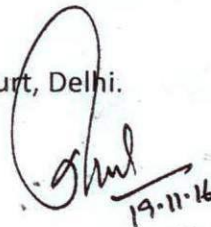 urt, Delhi.
19-11-16